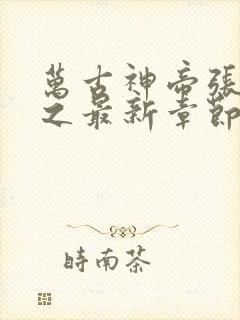 萬古神帝張
之最新章節
時南茶